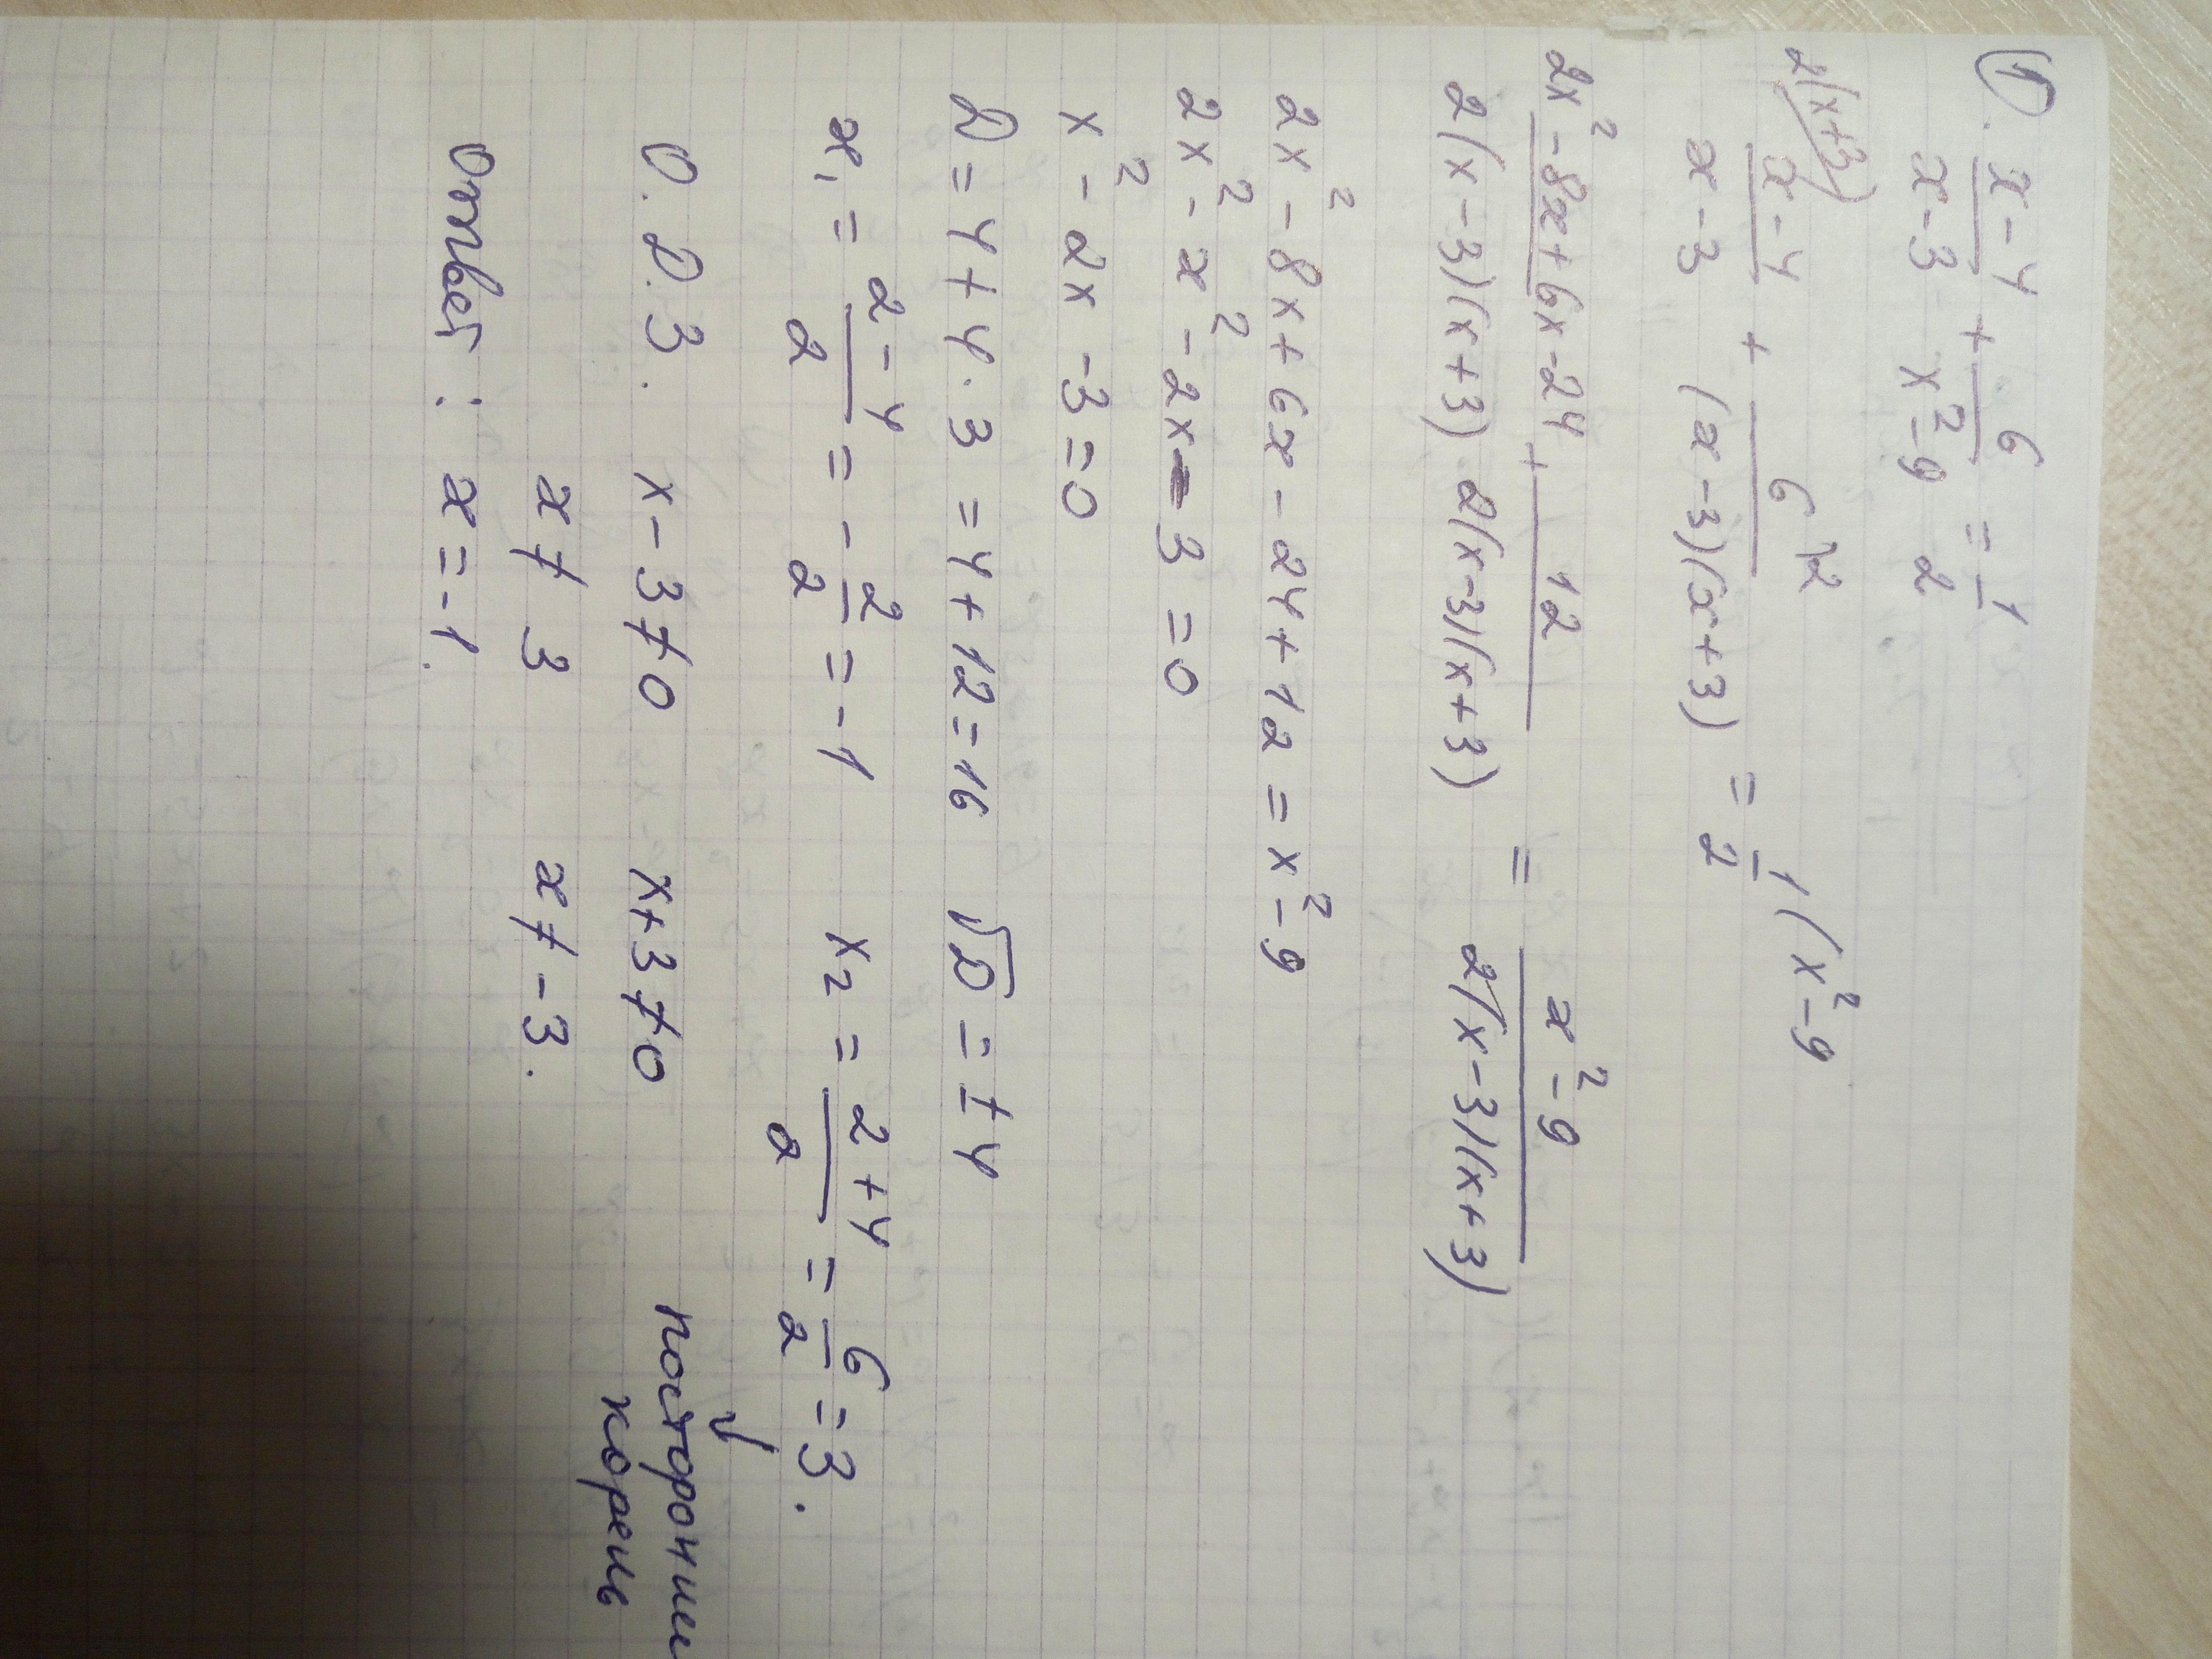 1. (x-4)/(x-3) + 6/(x²-9) = 1/2
2(x+3) (x-4)/(x-3) + 6 \2/((x-3)(x+3)) = 1/2 (x²-9
(2x²-8x+6x-24)/(2(x-3)(x+3)) + 12/(2(x-3)(x+3)) = (x²-9)/(2(x-3)(x+3))
2x²-8x+6x-24+12=x²-9
2x²-x²-2x-3=0
x²-2x-3=0
D=4+4·3=4+12=16 √D=±4
x₁=(2-4)/2=-2/2=-1 x₂=(2+4)/2=6/2=3.
О.Д.З. x-3≠0 x+3≠0 посторонний корень
x≠3 x≠-3.
Ответ: x=-1.